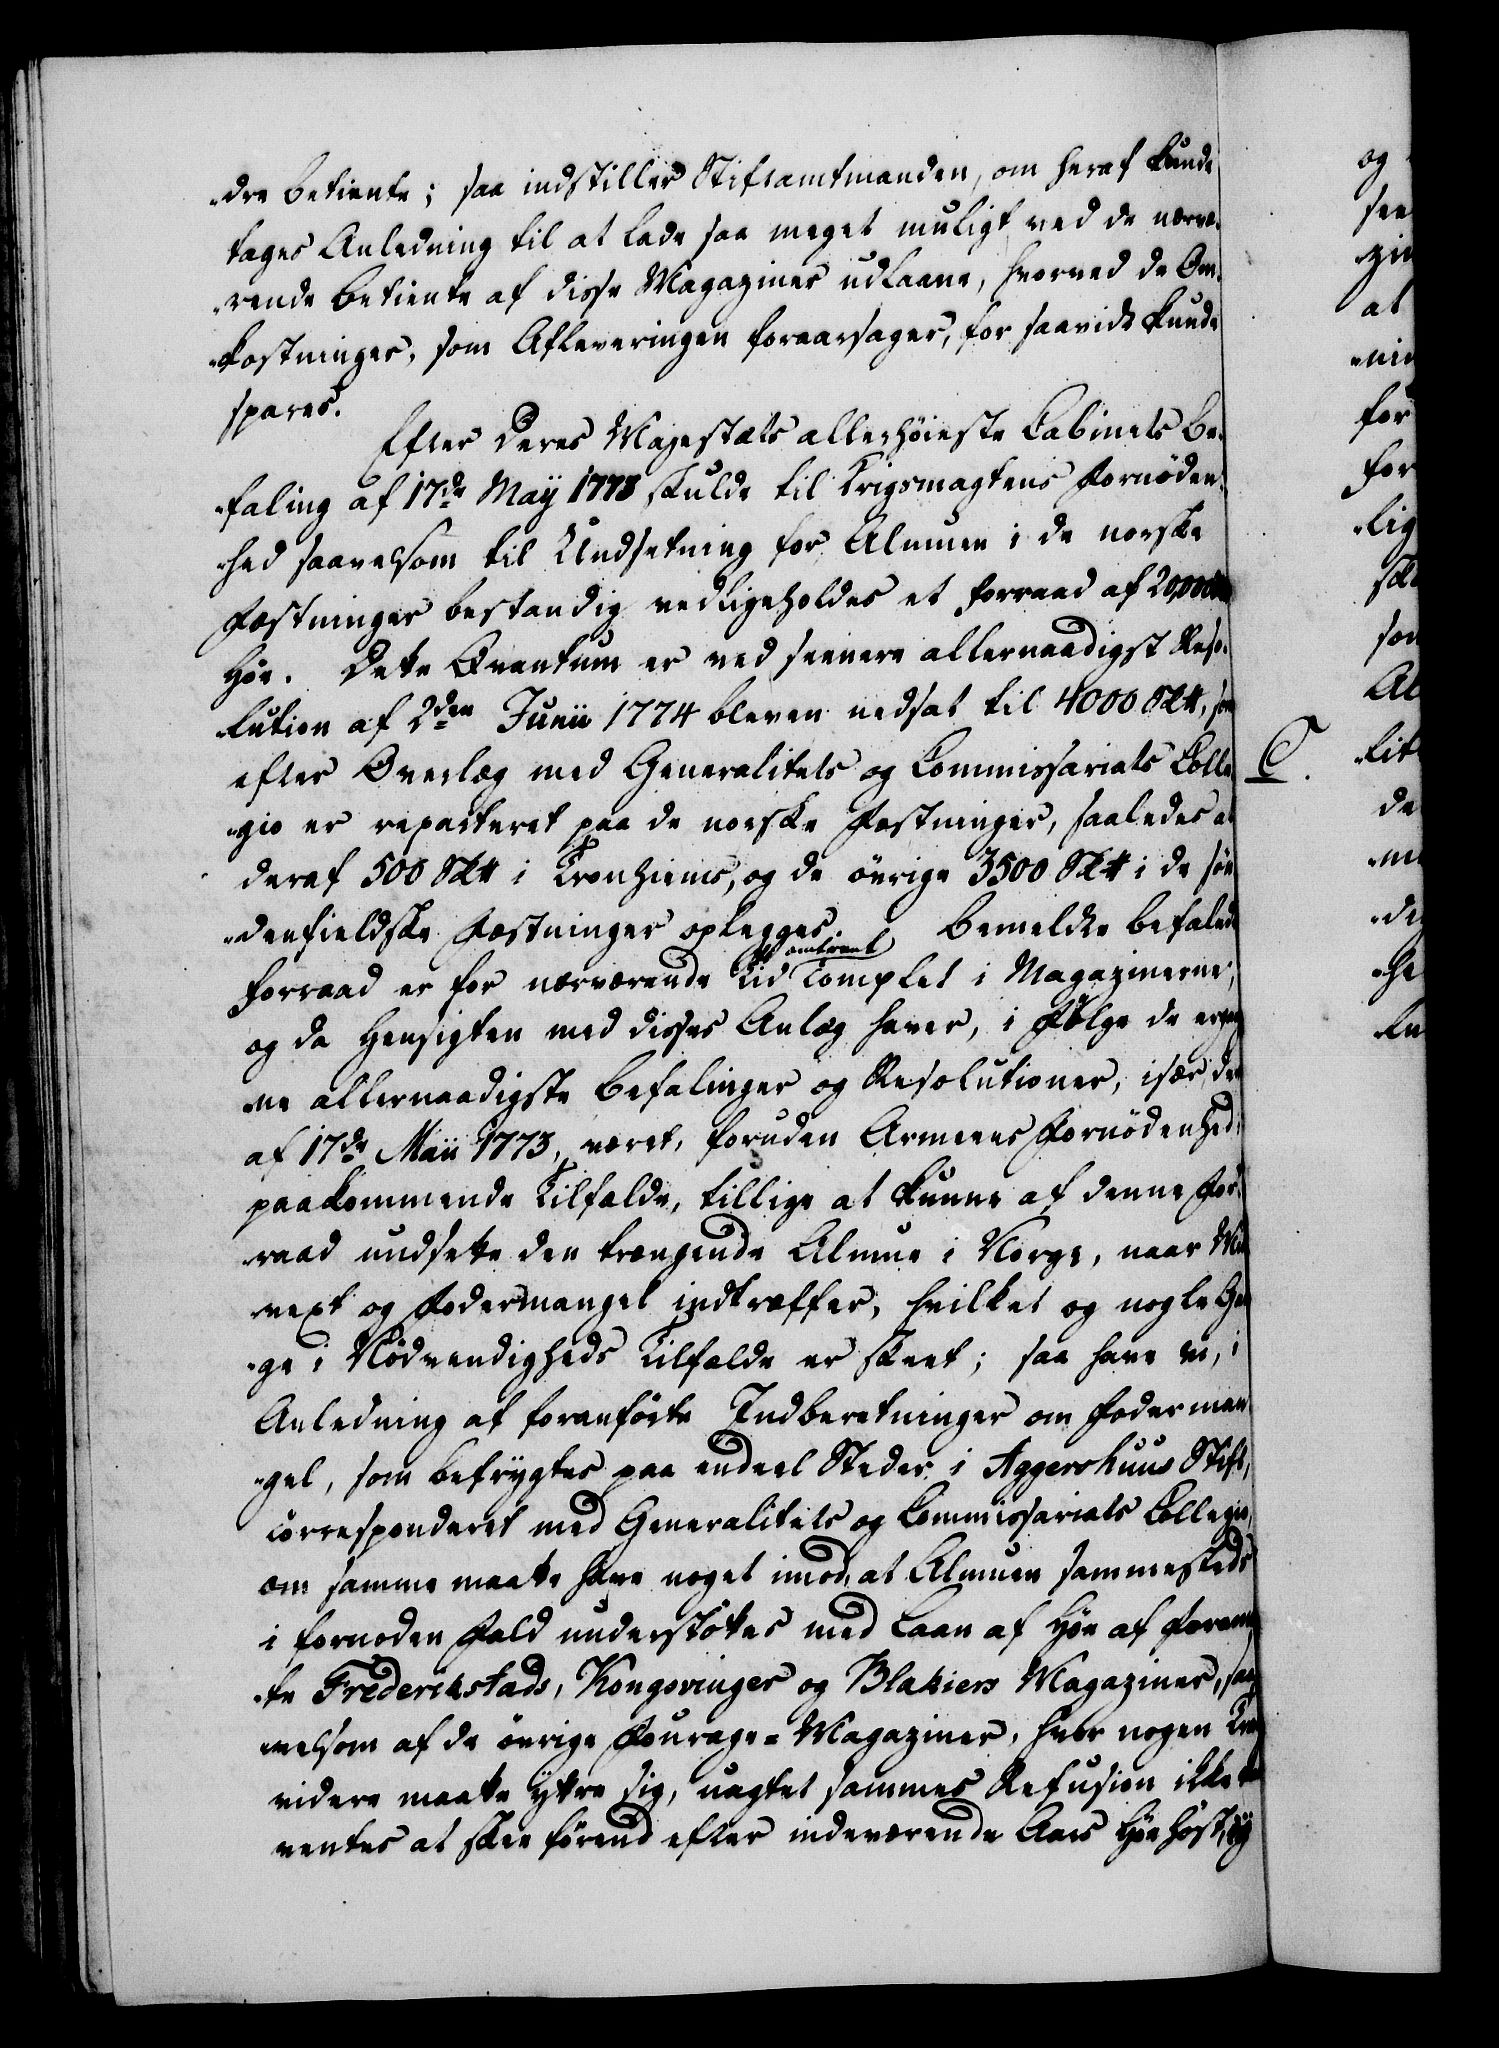 „dre betiente; saa indstiller Stiftamtmanden, om heraf kunde
tages Anledning til at lade saa meget muligt ved de nærvæ„
„rende betiente af disse Magaziner udlaane, hvorved de Om„
„kostninger, som Afleveringen foraarsager, for saavidt kunde
spares.
Efter Deres Majestæts allerhöieste Cabinets Be„
„faling af 17de Maÿ 1773 skulde til Krigsmagtens Fornöden„
„hed saavelsom til Undsetning for Almuen i de norske
Fæstninger bestandig vedligeholdes et forraad af 20,000
Höe. Dette Qvantum er ved seenere allernaadigst Reso„
„lution af 2den Junii 1774 bleven nedsat til 4000 Sk℔, som
efter Overlæg med Generalitets og Commissariats Colle„
„gio er reparteret paa de norske Fæstninger, saaledes at
deraf 500 Sk℔ i Tronhiems, og de övrige 3500 Sk℔ i de sön
„denfieldske Fæstninger oplegges. Bemeldte befalede
forraad er for nærværende Tid omtrent Complet i Magazinerne,
og da Hensigten med disses Anlæg haver, i Fölge de ergang
„ne allernaadigste Befalinger og Resolutioner, især den
af 17de Maii 1773, været, foruden Armeens Fornödenhed,
paakommende Tilfælde, tillige at kunne af denne For„
„raad undsette den trængende Almue i Norge, naar Mis
„vext og Fodermangel indtræffer, hvilket og nogle Gan
„ge i Nödvendigheds Tilfælde er skeet; saa have vi, i
Anledning af foranförte Indberetninger om Foderman
„gel, som befrygtes paa endeel Steder i Aggershuus Stift,
correspenderet med Generalitets og Commissariats Collegio,
om samme maatte have noget imod, at Almuen sammesteds
i fornöden Fald understöttes med Laan af Höe af
„te Frederikstads, Kongsvinger og Blakiers Magaziner, saa
„velsom af de övrige Fourage-Magaziner, hvor nogen Trang
videre maatte ÿtre sig, uagtet sammes Refusion ikke kan
ventes at skee förend efter indeværende Aars Höehöst, og
C.